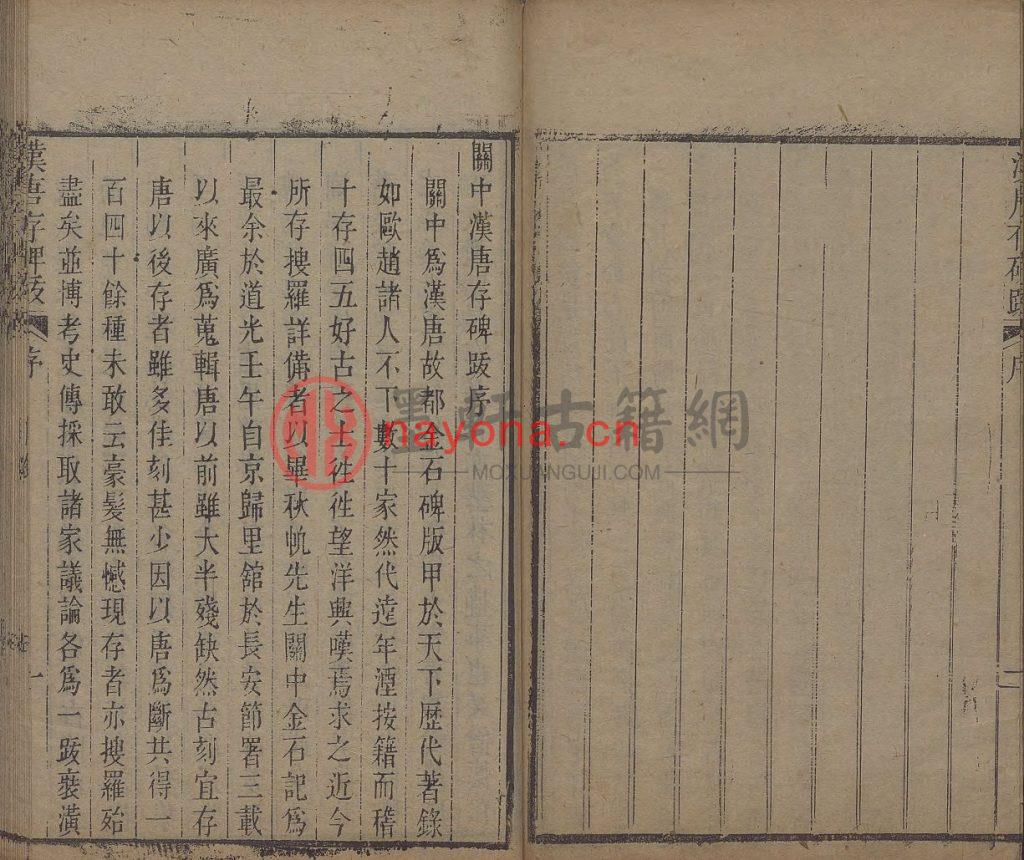 漢唐存碑跋 序
二
關中漢唐存碑跋序
關中爲漢唐故都金石碑版甲於天下歷代著錄
如歐趙諸人不下數十家然代遠年湮按籍而稽
十存四五好古之士徃徃望洋興嘆焉求之近今
所存搜羅詳備者以畢秋帆先生關中金石記爲
最余於道光壬午自京歸里舘於長安節署三載
以來廣爲蒐輯唐以前雖大半殘缺然古刻宜存
唐以後存者雖多佳刻甚少因以唐爲斷共得一
百四十餘種未敢云豪髮無憾現存者亦搜羅殆
盡矣並博考史傳採取諸家議論各爲一跋裝潢
漢唐存碑跋 序 一
墨軒古籍網
nayona.cn
MOXUANGUJI.COM